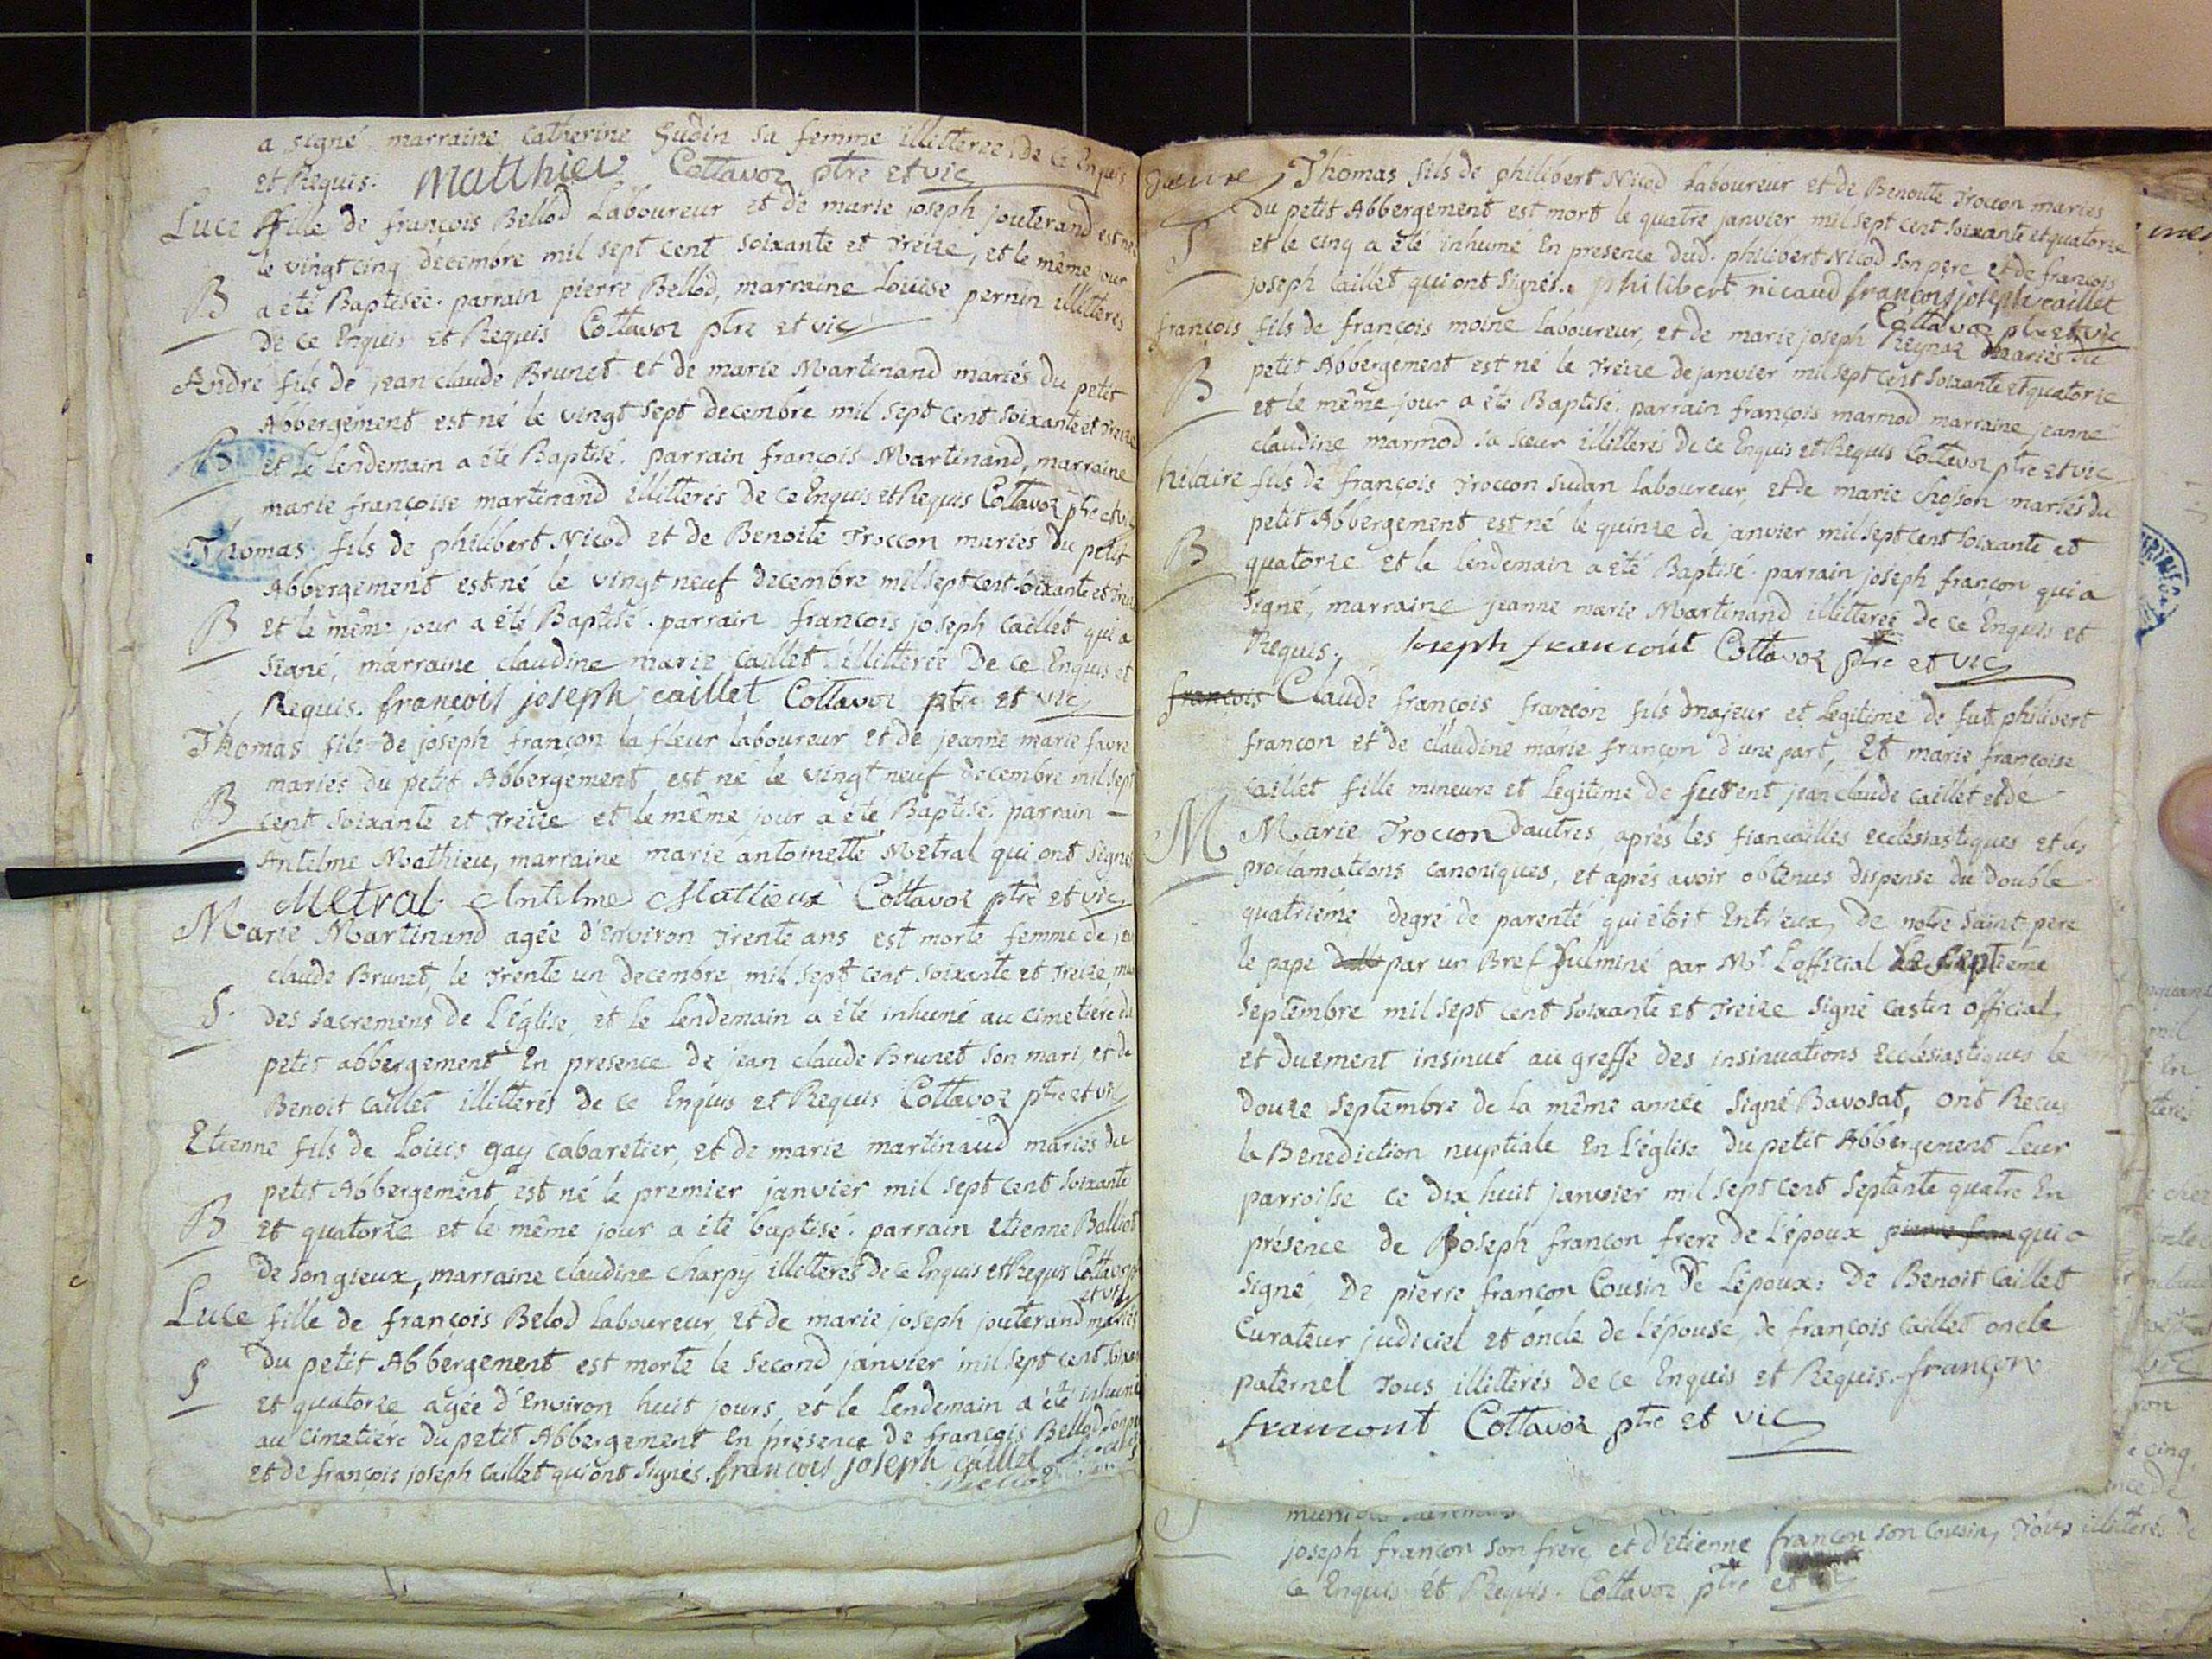 a signé marraine Catherine Gudin sa femme illitterée de ce Enquis
et Requis. Matthieu Cottavoz ptre et vic
Luce fille de françois Bellod Laboureur et de marie joseph jouterand est née
le vingt cinq décembre mil sept cent soixante et treize, et le même jour
B a eté Baptisée. parrain pierre Bellod, marraine Louise pernin illitterés
de ce Enquis et Requis Cottavoz ptre et vic
André fils de jean claude Brunet et de marie Martinand mariés du petit
Abbergement est né le vingt sept decembre mil sept cent soixante et treize
B et le lendemain a été Baptisé. parrain françois Martinand, marraine
marie françoise martinand illitterés de ce Enquis et Requis Cottavoz ptre et vic
Thomas fils de philibert Nicod et de Benoite Troccon mariés du petit
Abbergement est né le vingt neuf decembre mil sept cent soixante et treize
B et le même jour a été Baptisé. parrain françois joseph Caillet qui a
signé, marraine claudine marie Caillet illitterée de ce Enquis et
Requis. françois joseph caillet Cottavoz ptre et vic
Thomas fils de joseph françon la fleur laboureur et de jeanne marie favre
mariés du petit Abbergement est né le vingt neuf decembre mil sept
B cent soixante et treize et le même jour a été Baptisé. parrain
Antelme Mathieu, marraine marie antoinette Metral qui ont signé
Metral Antelme Matieux Cottavoz ptre et vic
Marie Martinand agée d'Environ trente ans est morte femme de jean
claude Brunet, le trente un decembre mil sept cent soixante et treize, munie
S. des sacremens de L'église, et le lendemain a été inhumé au cimetière du
petit abbergement En presence de jean claude Brunet son mari et de
Benoit Caillet illitterés de ce Enquis et Requis Cottavoz ptre et vic
Etienne fils de Louis gay cabaretier, et de marie martinaud mariés du
petit Abbergement est né le premier janvier mil sept cent soixante
B et quatorze et le même jour a été baptisé. parrain etienne Balliet
de songieux, marraine claudine charpy illitterés de ce Enquis et Requis Cottavoz ptre
et vic
Luce fille de françois Belod laboureur, et de marie joseph jouterand mariés
du petit Abbergement est morte le second janvier mil sept cent soixante
S et quatorze agée d'Environ huit jours et le lendemain a été inhumé
au cimetière du petit Abbergement En présence de françois Bellod son père
et de françois joseph Caillet qui ont signés. françois joseph caillet
Thomas fils de philibert Nicod Laboureur et de Benoite Troccon mariés
du petit Abbergement est mort le quatre janvier mil sept cent soixante et quatorze
S et le cinq a été inhumé En presence dud. philibert Nicod son père et de françois
joseph Caillet qui ont signés. philibert nicaud françois joseph caillet
Cottavoz ptre et vic
françois fils de françois moine Laboureur, et de marie joseph Reynoz mariés du
petit Abbergement est né le treize de janvier mil sept cent soixante et quatorze
B et le même jour a été Baptisé. parrain françois marmod marraine jeanne
claudine marmod sa sœur illitterés de ce Enquis et Requis Cottavoz ptre et vic
hilaire fils de françois Troccon sudan Laboureur, et de marie chosson mariés du
petit Abbergement est né le quinze de janvier mil sept cent soixante et
B quatorze et le lendemain a été Baptisé. parrain joseph françon qui a
signé, marraine jeanne marie Martinand illitterée de ce Enquis et
Requis. Joseph francont Cottavoz ptre et vic
françois Claude françois françon fils majeur et legitime de fut philibert
françon et de claudine marie françon d'une part, Et marie françoise
Caillet fille mineure et legitime de furent jean claude caillet et de
M Marie Troccon d'autres, après les fiançailles ecclésiastiques et les
proclamations canoniques, et après avoir obtenus dispense du double
quatrième degré de parenté qui étoit Entr'eux, de notre saint pere
le pape par un Bref fulminé par Mr L'official Le septieme
septembre mil sept cent soixante et treize signé castin official,
et duement insinué au greffe des insinuations Ecclésiastiques le
douze septembre de la même année signé Bavosat, ont Recu
la Benediction nuptiale En L'église du petit Abbergement leur
parroisse ce dix huit janvier mil sept cent septante quatre En
présence de joseph françon frere de l'époux pierre fran qui a
signé De pierre françon Cousin De L'époux: De Benoit Caillet
Curateur judiciel et oncle de l'épouse, de françois Caillet oncle
paternel tous illitterés de ce Enquis et Requis. françon
francont Cottavoz ptre et vic
joseph françon son frere, et d'etienne françon son cousin, tous illitterés de
ce Enquis et Requis. Cottavoz ptre et vic